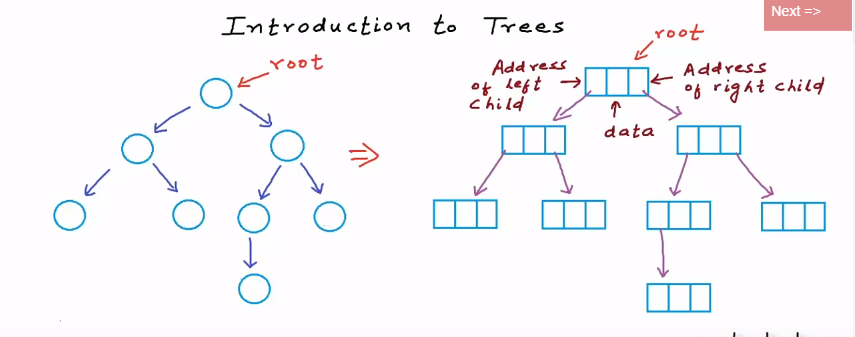 Introduction to Trees
Next =>
root
root
Address
of left
child
Address
of right child
data